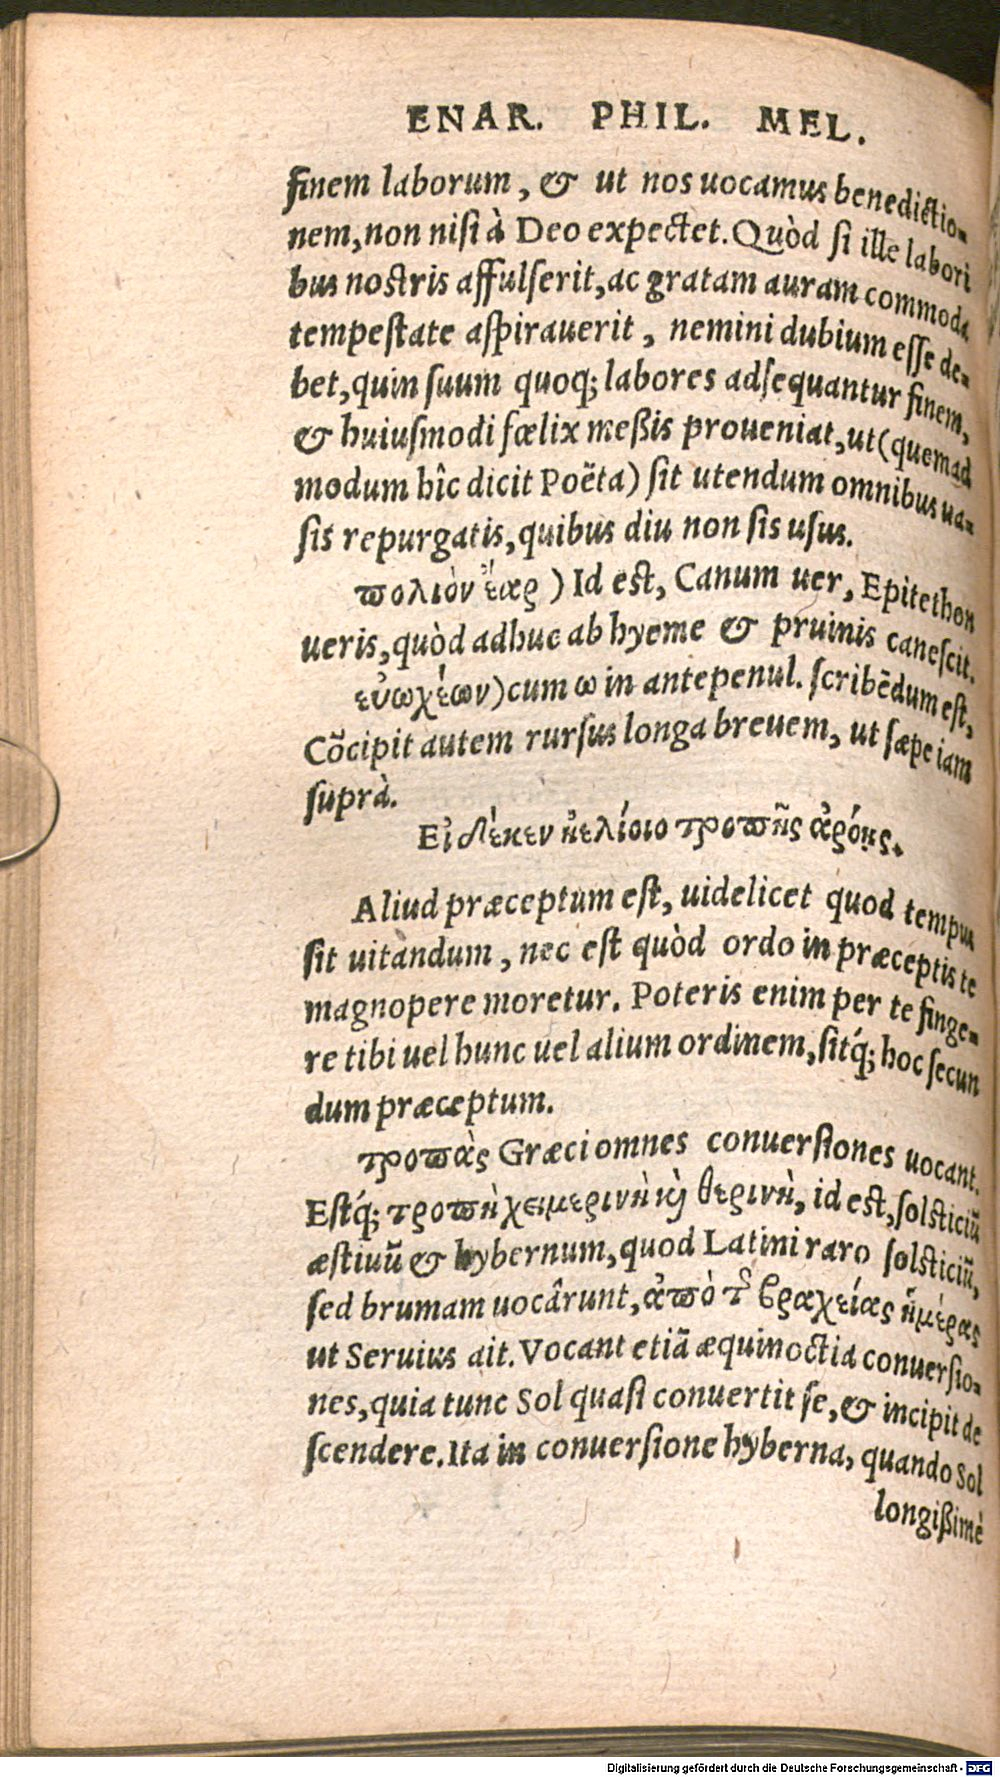 ENAR. PHIL. MEL.
finem laborum, & ut nos uocamus benedictio-
nem, non nisi à Deo expectet. Quòd si ille labori
bus nostris affulserit, ac gratam auram commoda
tempestate aspirauerit, nemini dubium esse de-
bet, quin suum quoq; labores adsequantur finem,
& huiusmodi fœlix meßis proueniat, ut (quemad
modum hîc dicit Poëta) sit utendum omnibus ua-
sis repurgatis, quibus diu non sis usus.
πολιὸν ἔαρ) Id est, Canum uer, Epitethon
ueris, quòd adhuc ab hyeme & pruinis canescit.
εὐωχέων) cum ω in antepenul. scribẽdum est,
Cõcipit autem rursus longa breuem, ut sæpe iam
suprà.
Εἰ δέκεν ἠελίοιο τροπῆς ἀρόῃς.
Aliud præceptum est, uidelicet quod tempus
sit uitandum, nec est quòd ordo in præceptis te
magnopere moretur. Poteris enim per te finge-
re tibi uel hunc uel alium ordinem, sitq́; hoc secun
dum præceptum.
τροπὰς Græci omnes conuersiones uocant.
Estq́; τροπὴ χειμερινὴ κὶ θερινὴ, id est, solsticiũ
æstiuũ & hybernum, quod Latini raro solsticiũ,
sed brumam uocârunt, ἀπὸ τ͂ βραχείας ἡμέρας
ut Seruius ait. Vocant etiã æquinoctia conuersio-
nes, quia tunc Sol quasi conuertit se, & incipit de
scendere. Ita in conuersione hyberna, quando Sol
longißimè
Digitalisierung gefördert durch die Deutsche Forschungsgemeinschaft - DFG